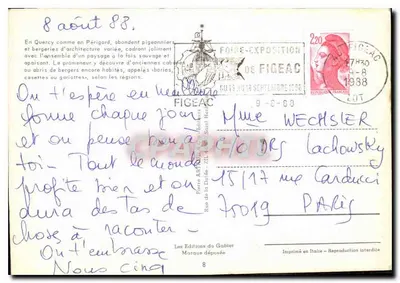 8 août 83.
En Quercy comme en Périgord, abondent pigeonniers
et bergeries d'architecture variée, cadrant joliment
avec l'ensemble d'un paysage à la fois sauvage et
apaisant. Le promeneur y découvre d'anciennes cabanes
ou abris de bergers encore habités, appelés
ou cazelles, selon les régions.
On t'espère en meilleure
forme chaque jour
et on pense bien à
toi - Tout le monde
profite bien et on
aura des tas de
chose à raconter -
On t'embrasse
Nous cinq
FOIRE-EXPOSITION
DE FIGEAC
FIGEAC
9-8-88
2,20
FIGEAC
9-8
1988
LOT
Mme WECHSLER
Lachowsky
15/17 rue Carducci
75019 PARIS
Les Editions du Goéter
Marque déposée
8
Imprimé en Italie - Reproduction interdite